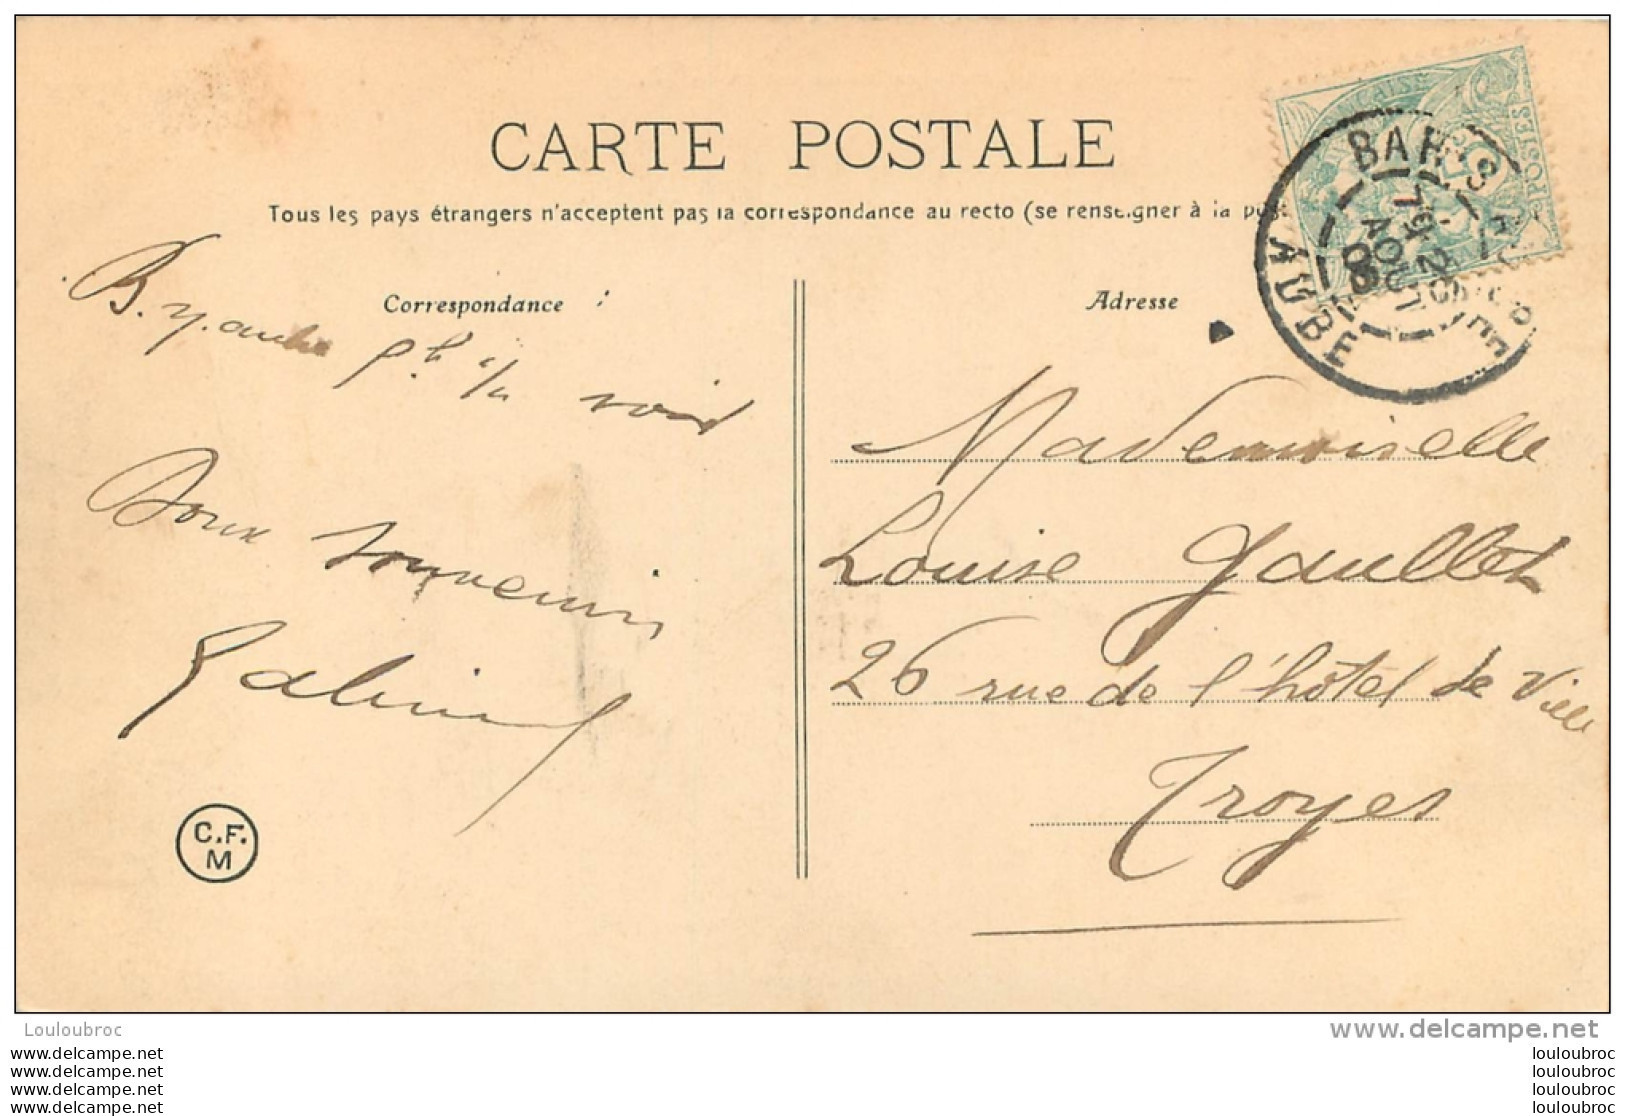 CARTE POSTALE
Tous les pays étrangers n'acceptent pas la correspondance au recto (se renseigner à la
Correspondance
Adresse
BAR-S
AUBE
AOUT
08
POSTES
B.
voir
Doux souvenirs
Mademoiselle
Louise Gaullet
26 rue de l'hôtel de Ville
Troyes
C.F.
M
Louloubroc
www.delcampe.net
www.delcampe.net
www.delcampe.net
www.delcampe.net
www.delcampe.net
louloubroc
louloubroc
louloubroc
louloubroc